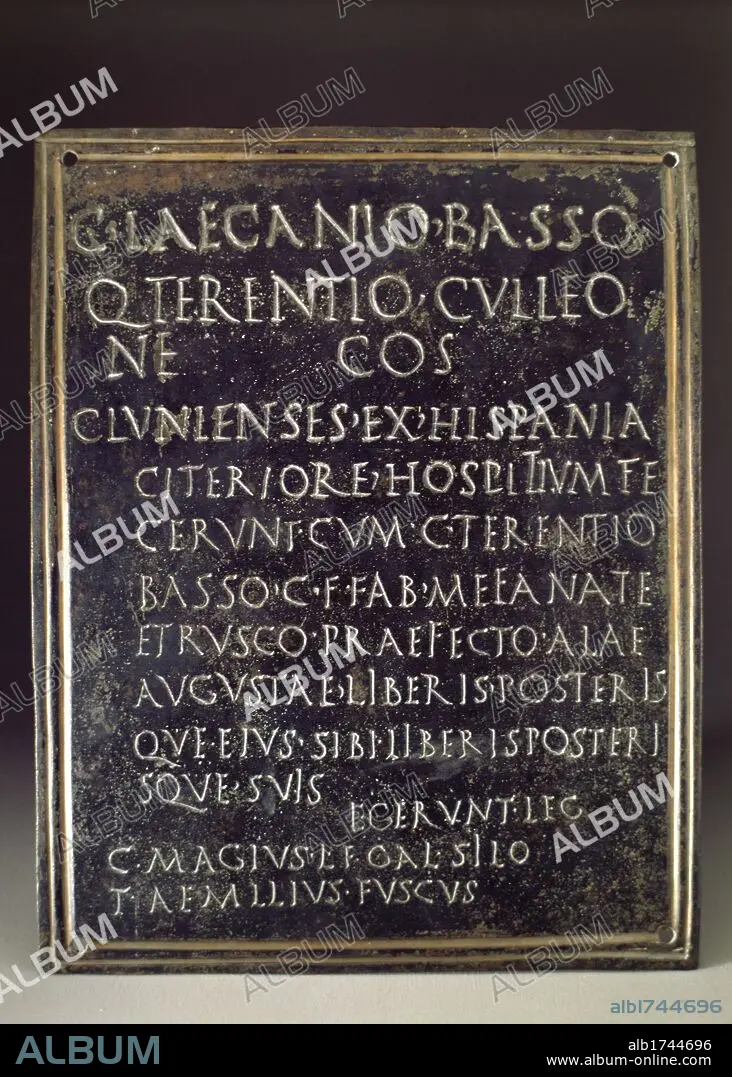 C·LAECANIO·BASSO
Q·TERENTIO·CVLLEO
NE COS
CLVNIENSES·EX·HISPANIA
CITERIORE·HOSPITIVM·FE
CERVNT·CVM·C·TERENTIO
BASSO·C·F·FAB·MEFANATE
ETRVSCO·PRAEFECTO·ALAE
AVGVSTAE·LIBERIS·POSTERIS
QVE·EIVS·SIBI·LIBERIS·POSTERI
SQVE·SVIS
EGERVNT·LEG
C·MAGIVS·L·F·GAL·SILO
T·AEMILIVS·FVSCVS
alb1744696
ALBUM
alb1744696
www.album-online.com